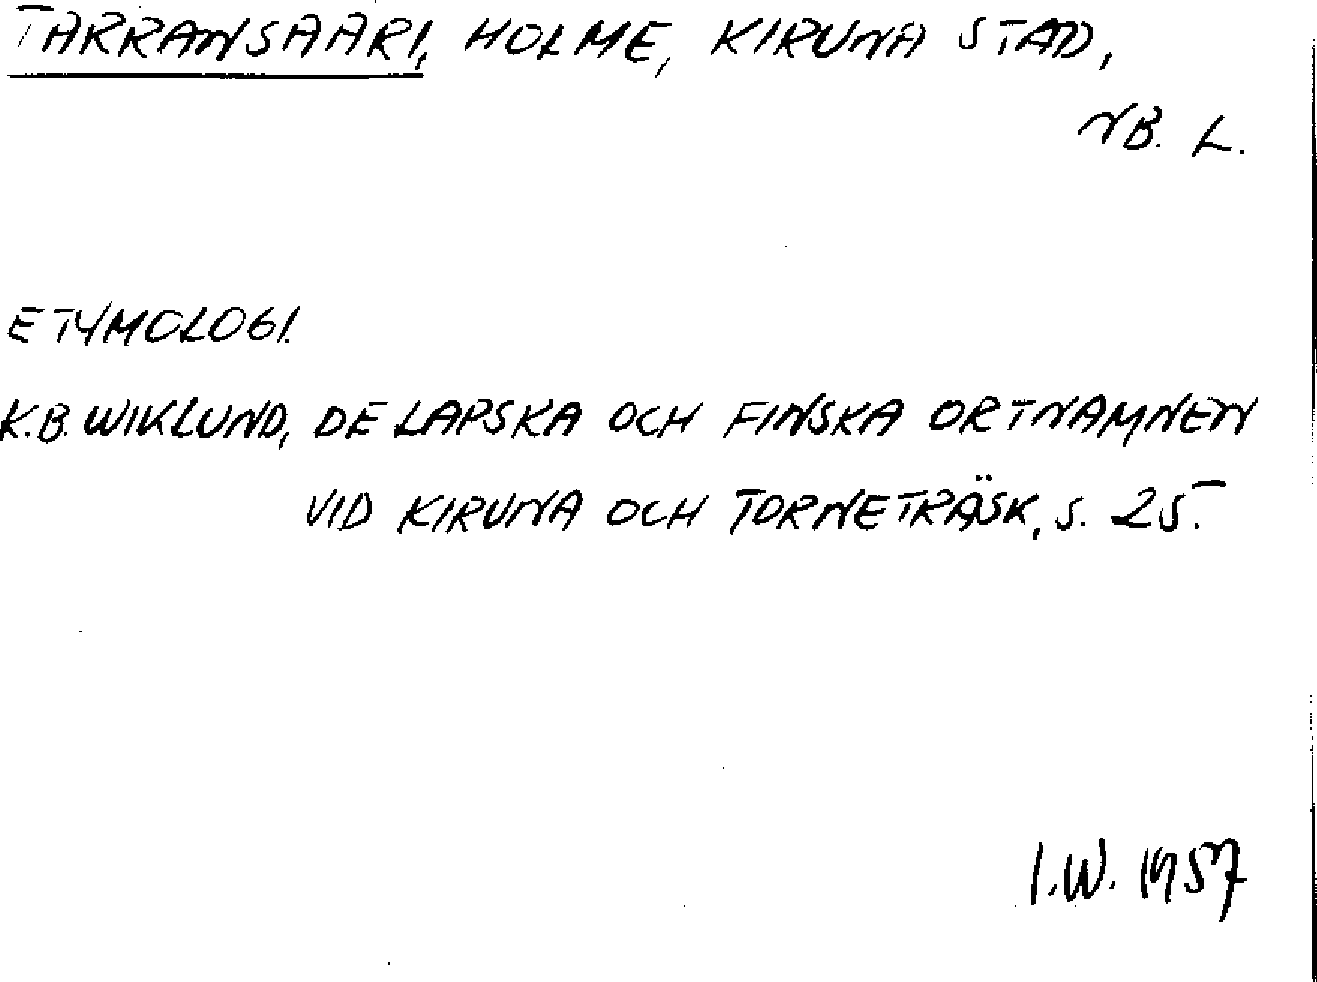 TARRANSAARI, HOLME, KIRUNA STAD,
NB. L.
ETYMOLOGI.
K.B. WIKLUND, DE LAPSKA OCH FINSKA ORTNAMNEN
VID KIRUNA OCH TORNETRÄSK, S. 25.
I.W. 1957